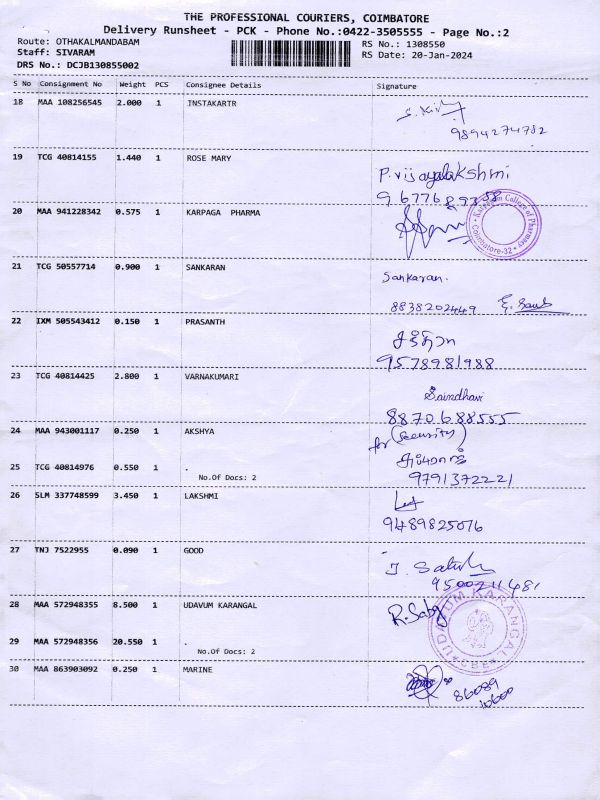 THE PROFESSIONAL COURIERS, COIMBATORE
Delivery Runsheet - PCK - Phone No.:0422-3505555 - Page No.:2
Route: OTHAKALMANDABAM RS No.: 1308550
Staff: SIVARAM RS Date: 20-Jan-2024
DRS No.: DCJB130855002
S No Consignment No Weight PCS Consignee Details Signature
18 MAA 108256545 2.000 1 INSTAKARTR
9894274782
19 TCG 40814155 1.440 1 ROSE MARY
P. vijayalakshmi
20 MAA 941228342 0.575 1 KARPAGA PHARMA
Coimbatore-32
21 TCG 50557714 0.900 1 SANKARAN
Sankaran.
8838202449
22 IXM 505543412 0.150 1 PRASANTH
9578981988
23 TCG 40814425 2.800 1 VARNAKUMARI
Saindhavi
8870688555
24 MAA 943001117 0.250 1 AKSHYA
for (security)
25 TCG 40814976 0.550 1 .
No.Of Docs: 2
9791372221
26 SLM 337748599 3.450 1 LAKSHMI
9489825076
27 TNJ 7522955 0.090 1 GOOD
9500211481
28 MAA 572948355 8.500 1 UDAVUM KARANGAL
UDAVUM KARANGAL
CBE
29 MAA 572948356 20.550 1 .
No.Of Docs: 2
30 MAA 863903092 0.250 1 MARINE
86089